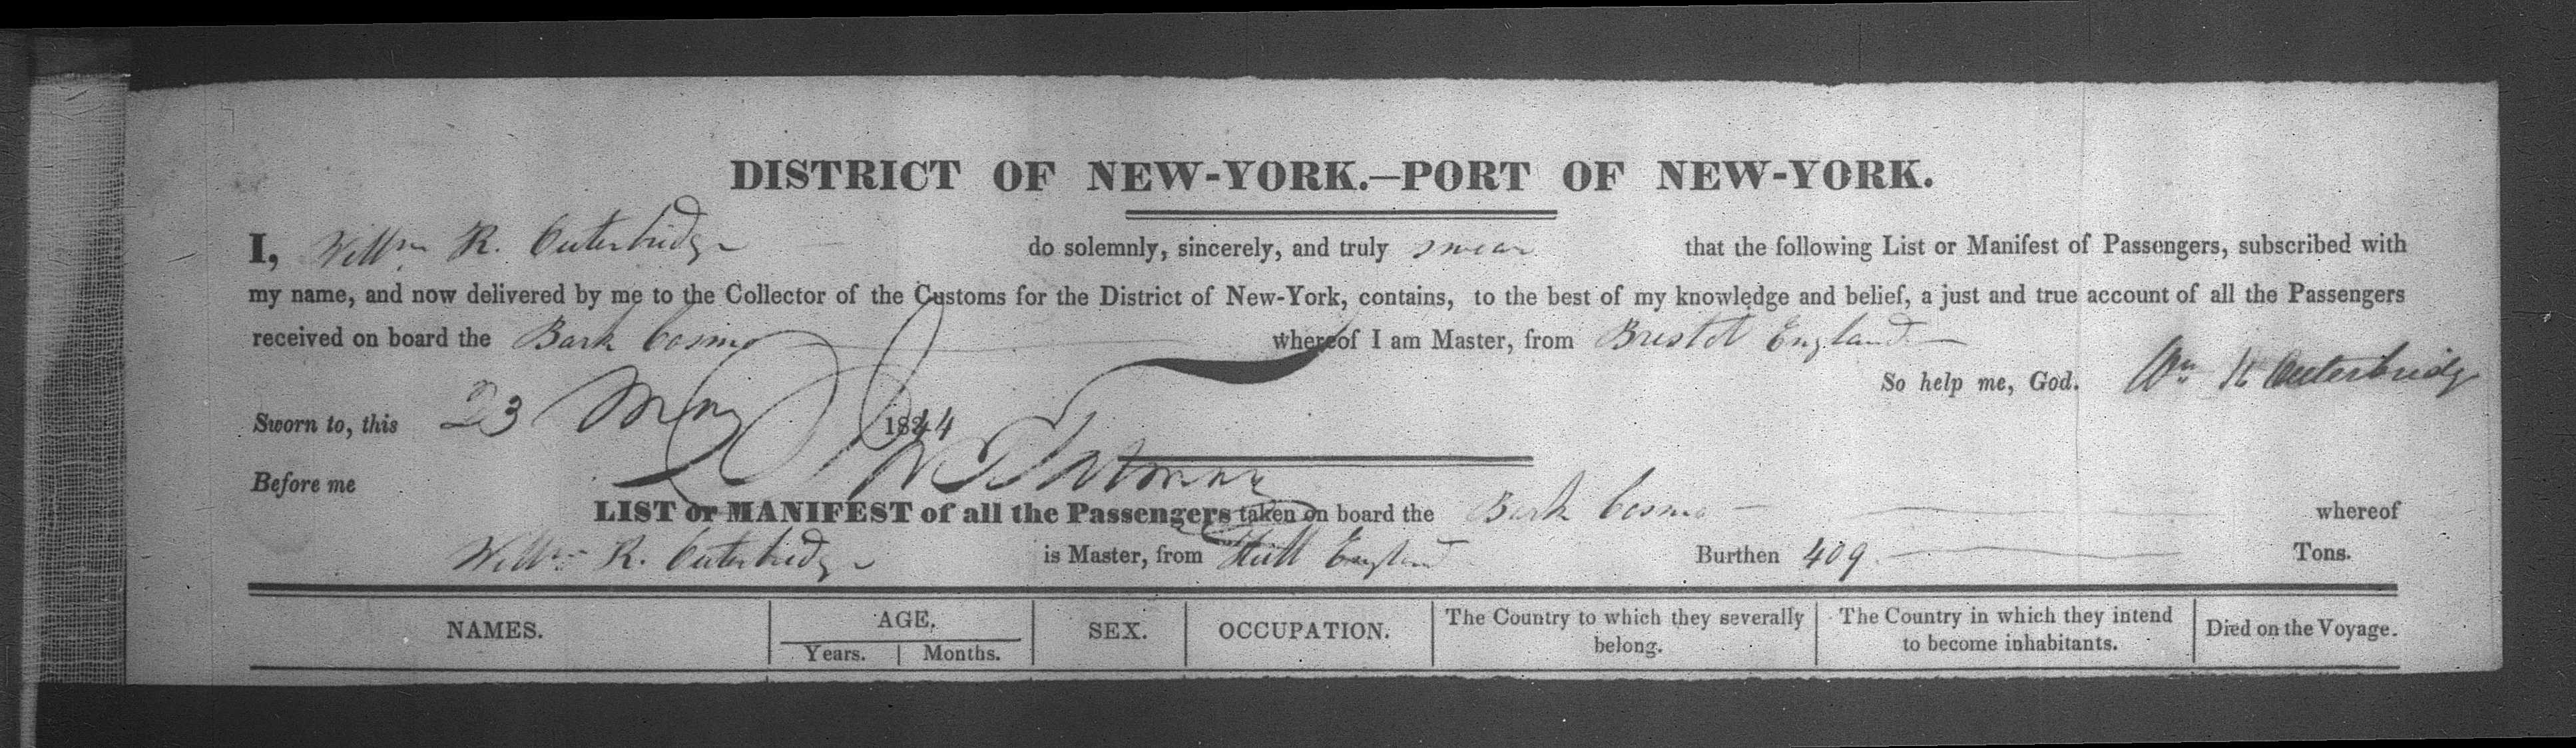 DISTRICT OF NEW-YORK.—PORT OF NEW-YORK.
I, Willm R. Outerbridge do solemnly, sincerely, and truly swear that the following List or Manifest of Passengers, subscribed with
my name, and now delivered by me to the Collector of the Customs for the District of New-York, contains, to the best of my knowledge and belief, a just and true account of all the Passengers
received on board the Bark Cosmo whereof I am Master, from Bristol England
So help me, God. Wm R Outerbridge
Sworn to, this 23 May 1844
Before me
LIST or MANIFEST of all the Passengers taken on board the Bark Cosmo whereof
Willm R. Outerbridge is Master, from Hull England Burthen 409 Tons.
NAMES. AGE. SEX. OCCUPATION. The Country to which they severally belong. The Country in which they intend to become inhabitants. Died on the Voyage.
Years. Months.